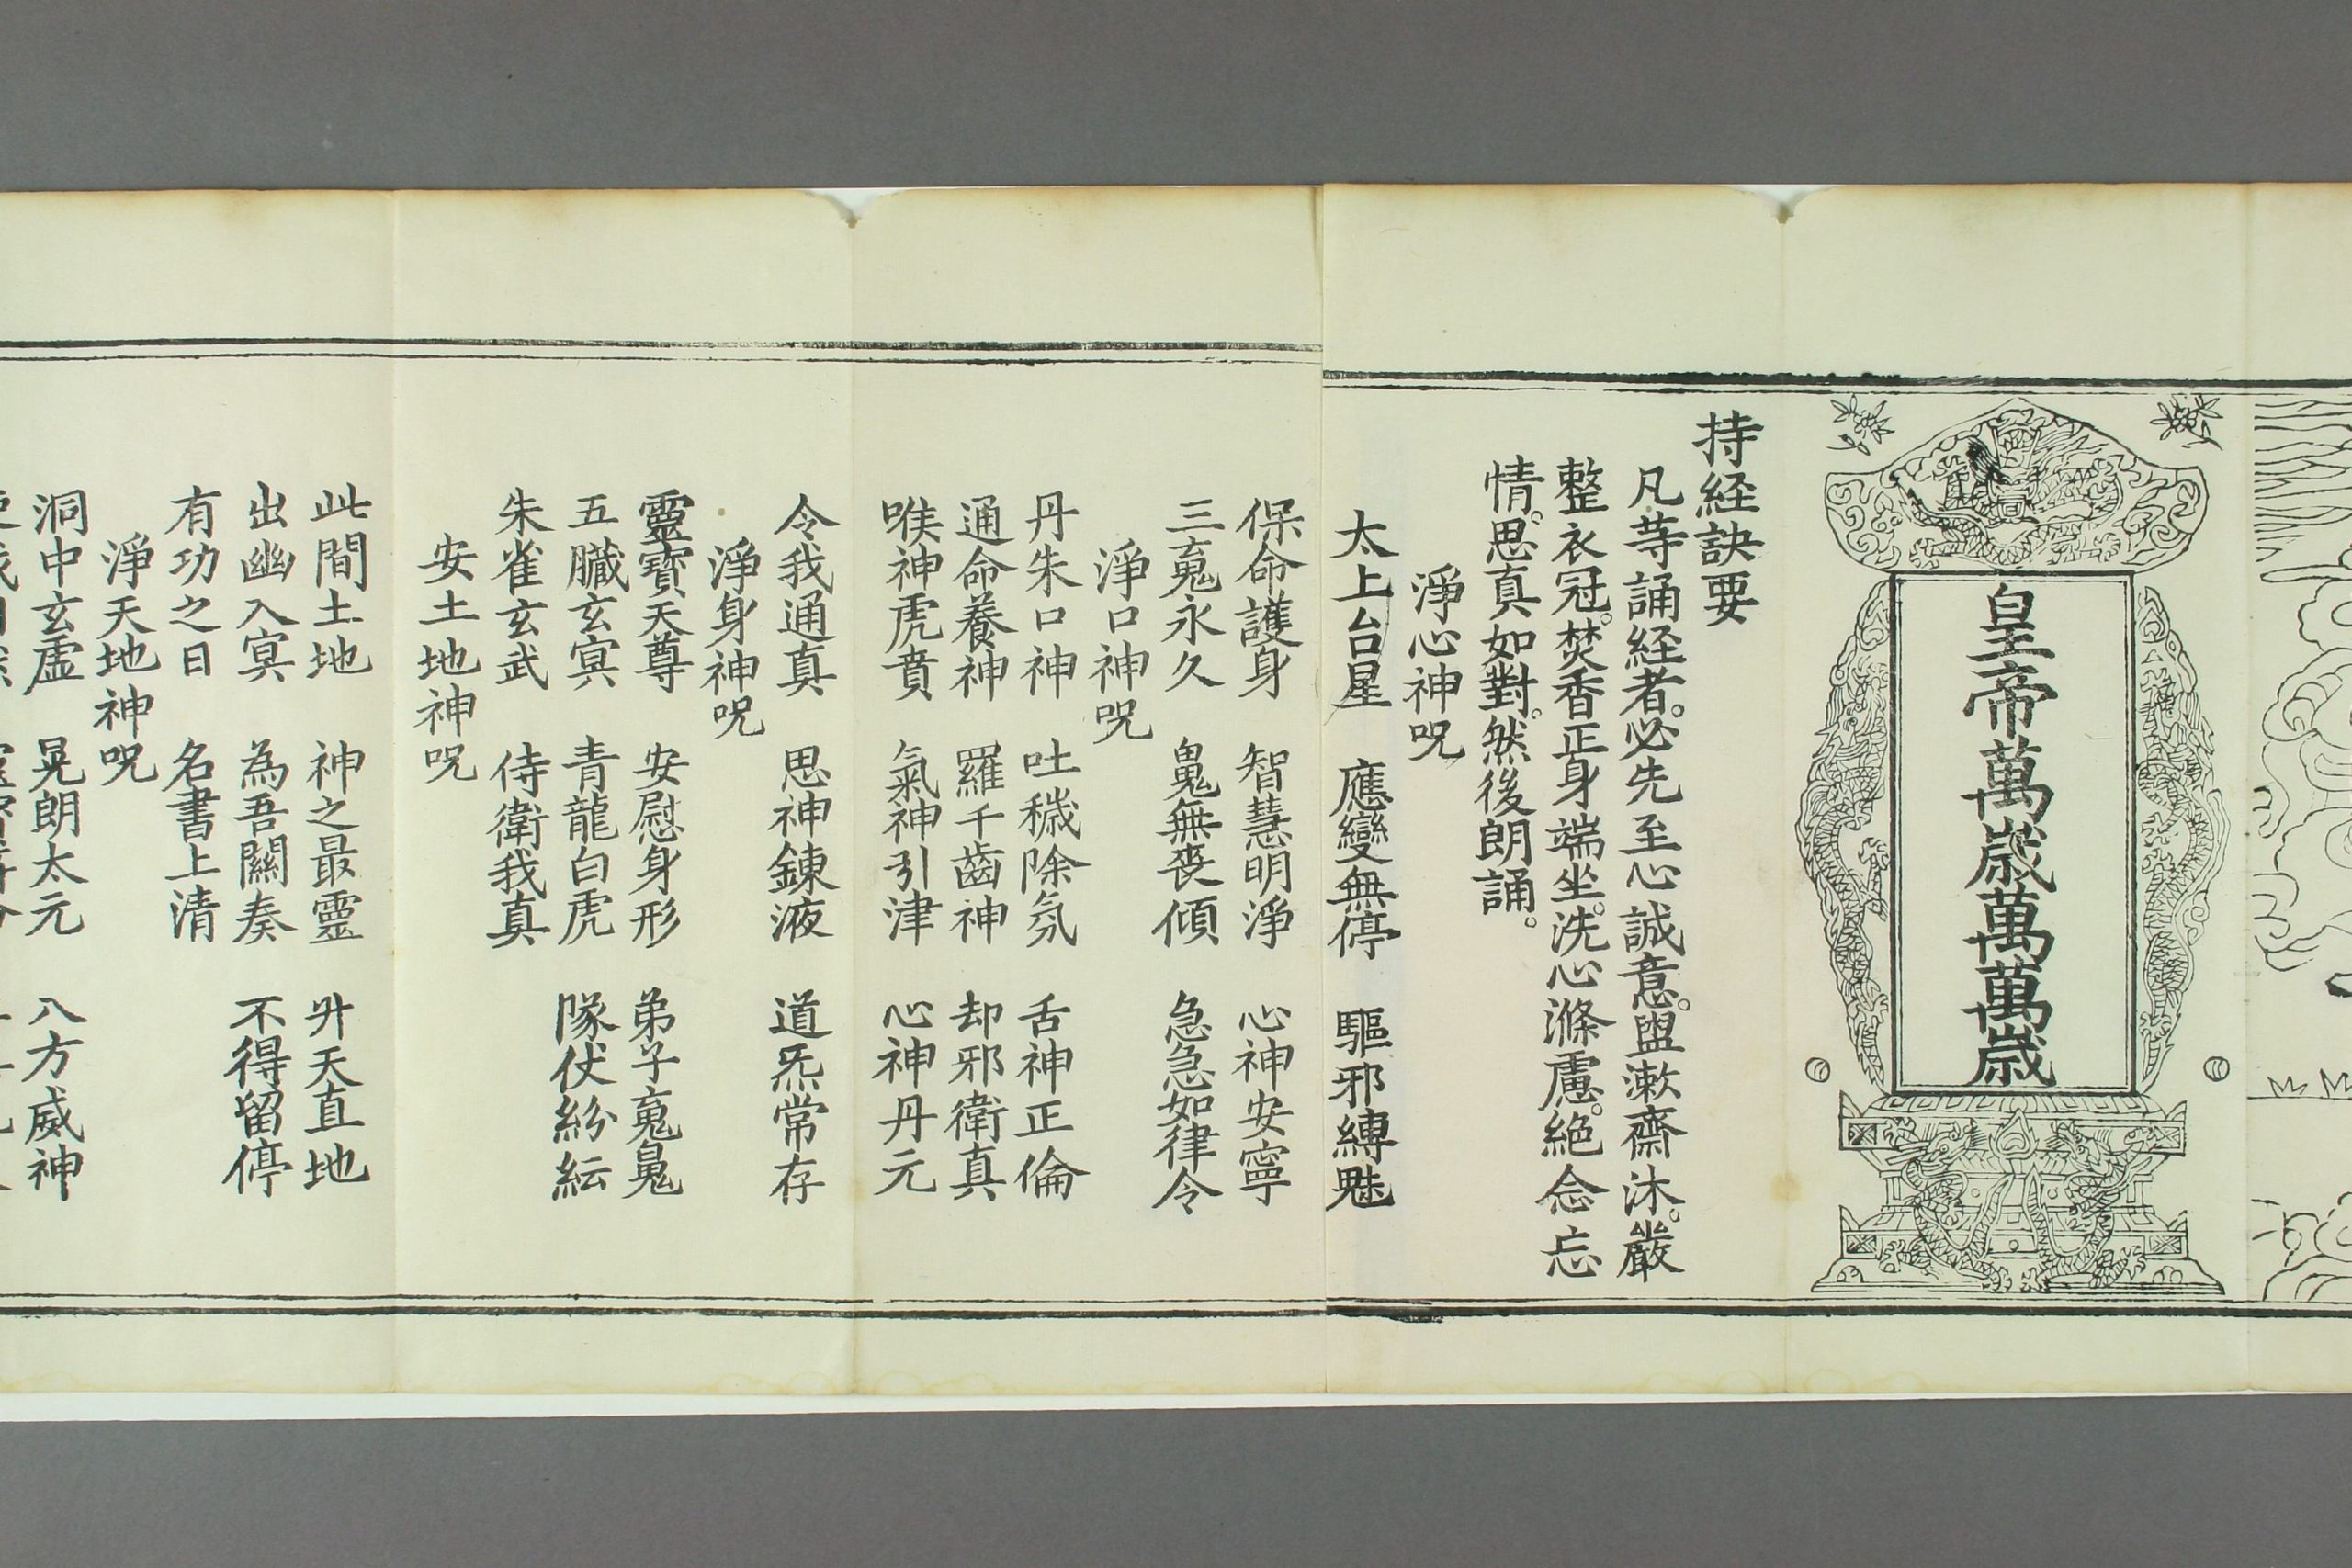 皇帝萬歲萬萬歲
持経訣要
凡䓁誦経者。必先至心誠意。盥漱齋沐。嚴
整衣冠。焚香正身端坐。洗心滌慮。絕念忘
情。思真如對。然後朗誦。
淨心神呪
太上台星 應變無停 驅邪縛魅
保命護身 智慧明淨 心神安寧
三䰟永久 魄無喪傾 急急如律令
淨口神呪
丹朱口神 吐穢除氛 舌神正倫
通命養神 羅千齒神 却邪衛真
喉神虎賁 氣神引津 心神丹元
令我通真 思神鍊液 道炁常存
淨身神呪
靈寶天尊 安慰身形 弟子䰟魄
五臟玄冥 青龍白虎 隊仗紛紜
朱雀玄武 侍衛我真
安土地神呪
此間土地 神之最靈 升天直地
出幽入冥 為吾關奏 不得留停
有功之日 名書上清
淨天地神呪
洞中玄虛 晃朗太元 八方威神